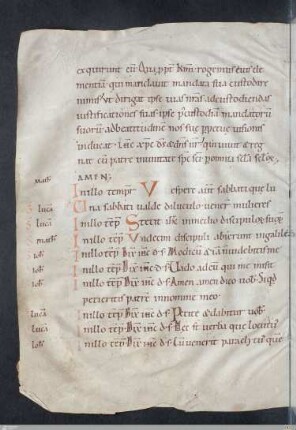 exquirunt eū Qua ppt km rogemus eius cle
mentiā qui mandauit mandata sua custodire
nimis ut dirigat ipse uias nras ad custodiendas
iustificationes suas ipse p custodiā mandatorū
suorū ad beatitudinē nos suę ppetuę uisionis
inducat
nat cū patre in unitate sps sci pomnia scla sclorę
AMEN;
math In illo tempr Vespere aūt sabbati que lu
Una sabbati ualde diluculo uener mulieres
Luca In illo tēp Stetit ihc in medio discipulorę suorę
math In illo tēp Undecim discipuli abierunt in galileā
ioh In illo tēp Dix ihc d s Modicū & iā n uidebitis me
ioh In illo tēp Dix ihc d s Uado ad eū qui me misit
ioh In illo tēp Dix ihc d s Amen amen dico uob Siqd
petieritis patrē in nomine meo
Luca In illo tēp Dix ihc d s Petite & dabitur uob
Luca In illo tēp Dix ihc d s Hec st uerba que locutus
ioh In illo tēp Dix ihc d s Cū uenerit paraclitus quē